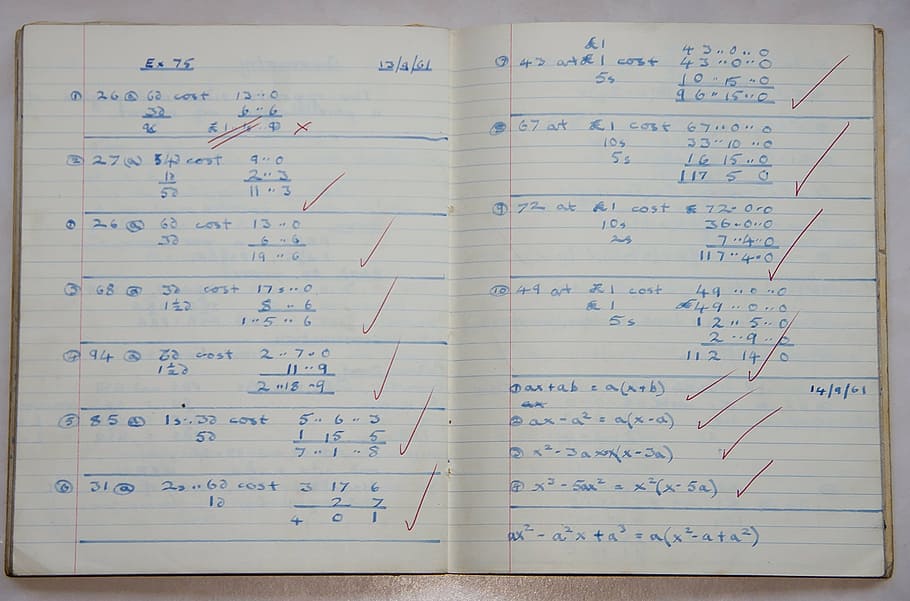 Ex 75 13/9/61
① 26 @ 6d cost 13 .. 0
3d 6 .. 6
9d
② 27 @ cost 9 .. 0
1d 2 .. 3
5d 11 .. 3
① 26 @ 6d cost 13 .. 0
3d 6 .. 6
19 .. 6
③ 68 @ 3d cost 17s .. 0
1½d 8 .. 6
1 .. 5 .. 6
④ 94 @ cost 2 .. 7 .. 0
1½d 11 .. 9
2 .. 18 .. 9
⑤ 85 @ 1s .. 3d cost 5 .. 6 .. 3
5d 1 15 5
7 .. 1 .. 8
⑥ 31 @ 2s .. 6d cost 3 17 6
1d 2 7
4 0 1
£1 43 .. 0 .. 0
⑦ 43 at £1 cost 43 .. 0 .. 0
5s 10 .. 15 .. 0
96 .. 15 .. 0
⑧ 67 at £1 cost 67 .. 0 .. 0
10s 33 .. 10 .. 0
5s 16 15 .. 0
117 5 0
⑨ 72 at £1 cost £ 72 - 0 .. 0
10s 36 .. 0 .. 0
2s 7 .. 4 .. 0
117 .. 4 .. 0
⑩ 49 at £1 cost 49 .. 0 .. 0
£1 £49 .. 0 .. 0
5s 12 .. 5 .. 0
2 .. 9 .. 0
112 14 0
① ax + ab = a(x+b) 14/9/61
② ax - a² = a(x-a)
③ x² - 3ax = x(x-3a)
④ x³ - 5ax² = x²(x-5a)
ax² - a²x + a³ = a(x²-a+a²)